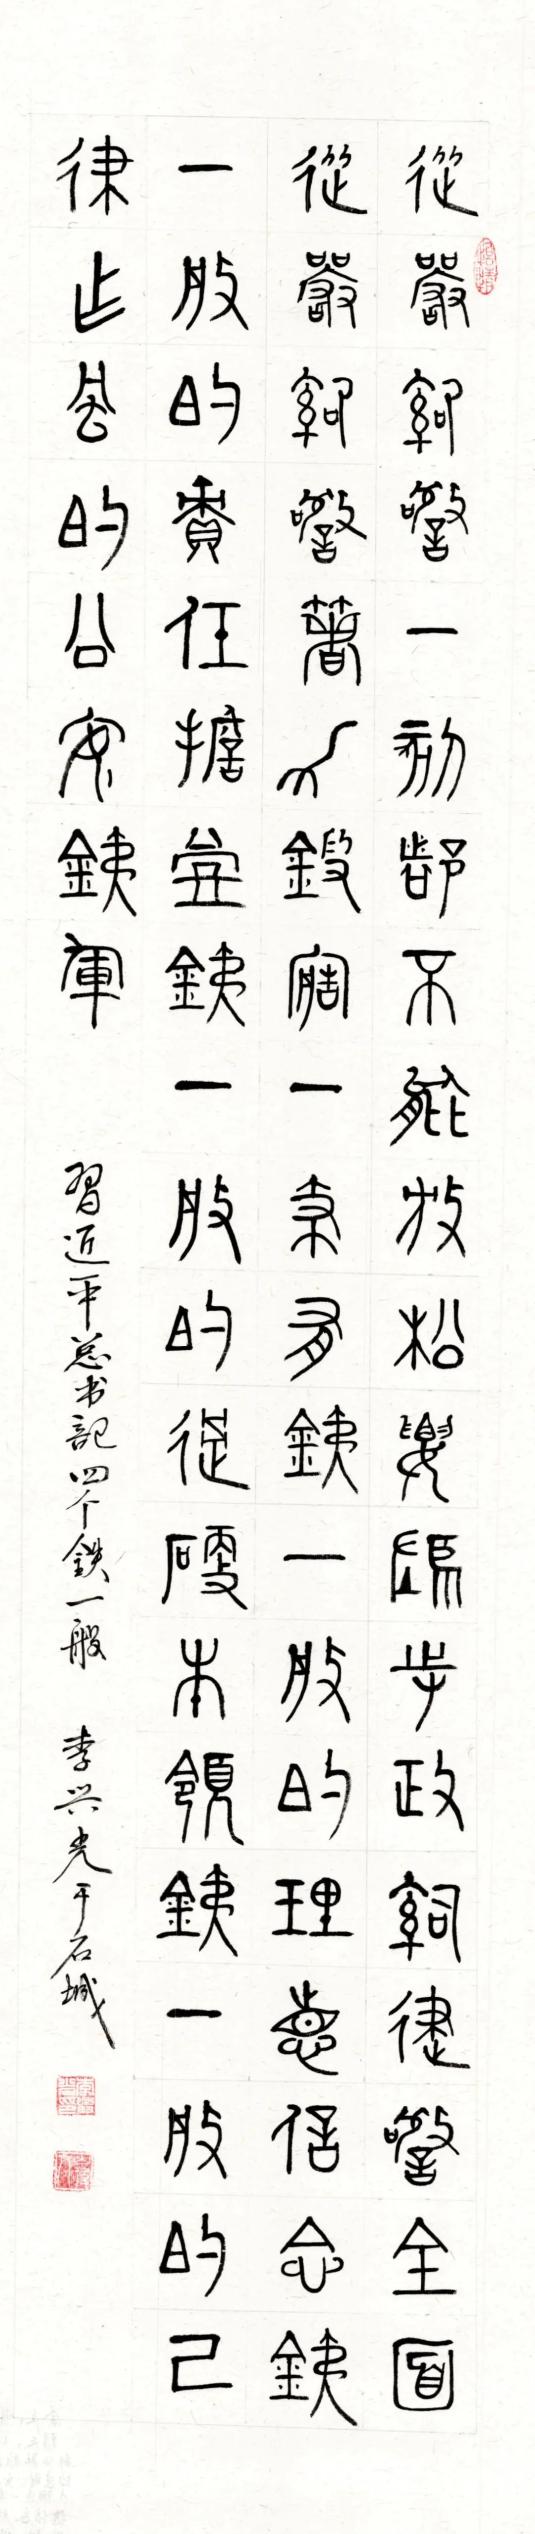 從嚴治警一刻都不能放松要堅持政治建警全面
從嚴治警著力鍛造一支有銕一般的理想信念銕
一般的責任擔當銕一般的過硬本領銕一般的己
律作風的公安銕軍
習近平总书記四个鉄一般 李兴光于石城